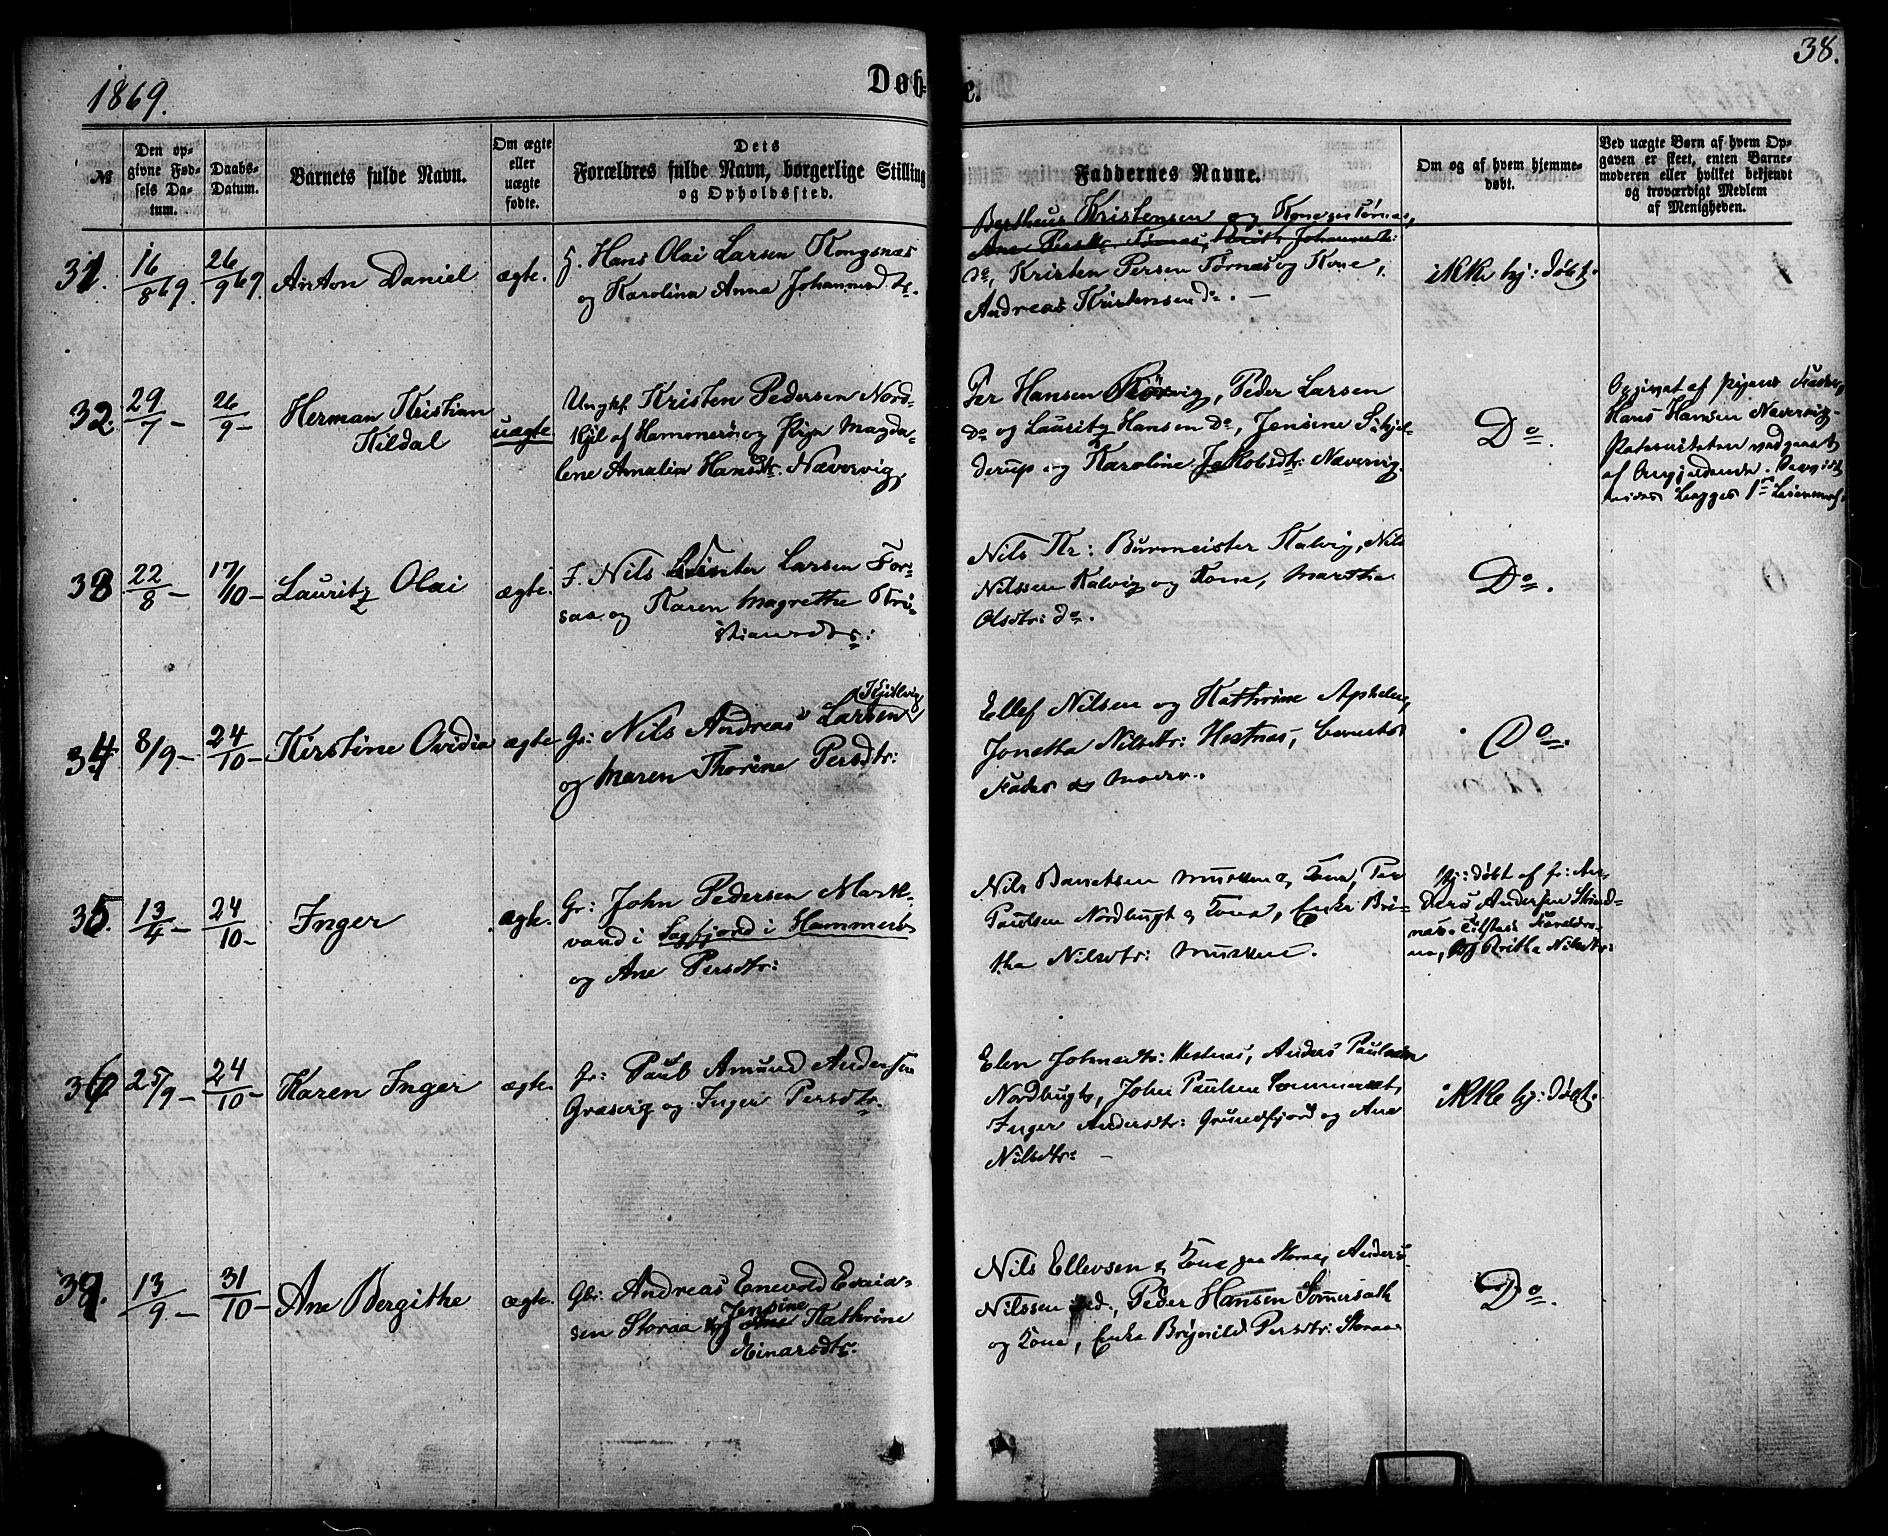 38.
1869.
Døbte.
№
Den opgivne Fødsels Datum.
Daabs-Datum.
Barnets fulde Navn.
Om ægte eller uægte fødte.
Dets Forældres fulde Navn, borgerlige Stilling og Opholdssted.
Faddernes Navne.
Om og af hvem hjemmedøbt.
Ved uægte Børn af hvem Opgaven er skeet, enten Barnemoderen eller hvilket bekjendt og troværdigt Medlem af Menigheden.
31. 16/8 69. 26/9 69. Anton Daniel ægte.
Hans Olai Larsen Kongsnæs
og Karolina Anna Johannesd do.
Bertheus Kristensen og Kone Tørnæs,
do, Kristen Persen Tørnæs og Kone,
Andreas Kristensen do. —
ikke hj: døbt.
32. 29/7 - 26/9 - Herman Kristian
Hildal
uægte
Ungkf. Kristen Pedersen Nord-
fjil af Hammerø og Pige Magda-
lene Amalia Hansdtr. Nævervig,
Per Hansen Rørvig, Peder Larsen
do og Lauritz Hansen do, Jensine Schjel-
derup og Karoline Jakobsdtr: Nævervig.
Do.
Opgivet af Pigens Fader,
Hans Hansen Nævervig.
Paterniteten vedgaaet
af Angjeldende.
33 22/8 - 17/10 - Lauritz Olai ægte.
F. Nils Winter Larsen For-
saa og Karen Magrethe Kri-
stiansdtr:
Nils Kr: Burmeister Kalvig, Nils
Nilssen Kalvig og Kone, Martha
Olsdtr: do.
Do.
34. 8/9 - 24/10 - Kirstine Ovidia ægte
Gr: Nils Andreas Larsen
og Maren Thorine Persdtr:
Ellef Nilsen og Kathrine
Jonetta Nilsdtr: Hestnæs,
Fader og Moder.
Do.
35. 13/4 - 24/10 - Inger ægte.
Gr: John Pedersen Mørk-
vand i Sagfjord i Hammerø
og Ane Persdtr:
Nils Bentsen Musken og Kone, Per
Paulsen Nordbugt og Kone, Enke Bri-
tha Nilsdtr: Musken.
hj: døbt af
Andersen Strind-
næs. Forældre-
ne, og Britha Nilsdtr:
36 25/9 - 24/10 - Karen Inger ægte.
Gr: Paul Amund Andersen
Græsvig og Inger Persdtr.
Elen Johnsdtr: Hestnæs, Anders Paulsen
Nordbugt, John Paulsen Sommersæt,
Inger Andersdtr: Grundfjord og Ane
Nilsdtr: —
ikke hj: døbt.
37. 13/9 - 31/10 - Ane Bergithe ægte.
Gbr: Andreas Enevold Esaia-
sen Storaa og Jensine Kathrine
Einarsdtr:
Nils Ellevsen og Kone paa Storaa, Anders
Nilssen ibd., Peder Hansen Sommersæth
og Kone, Enke Brynild Persdtr: Storaa
Do.